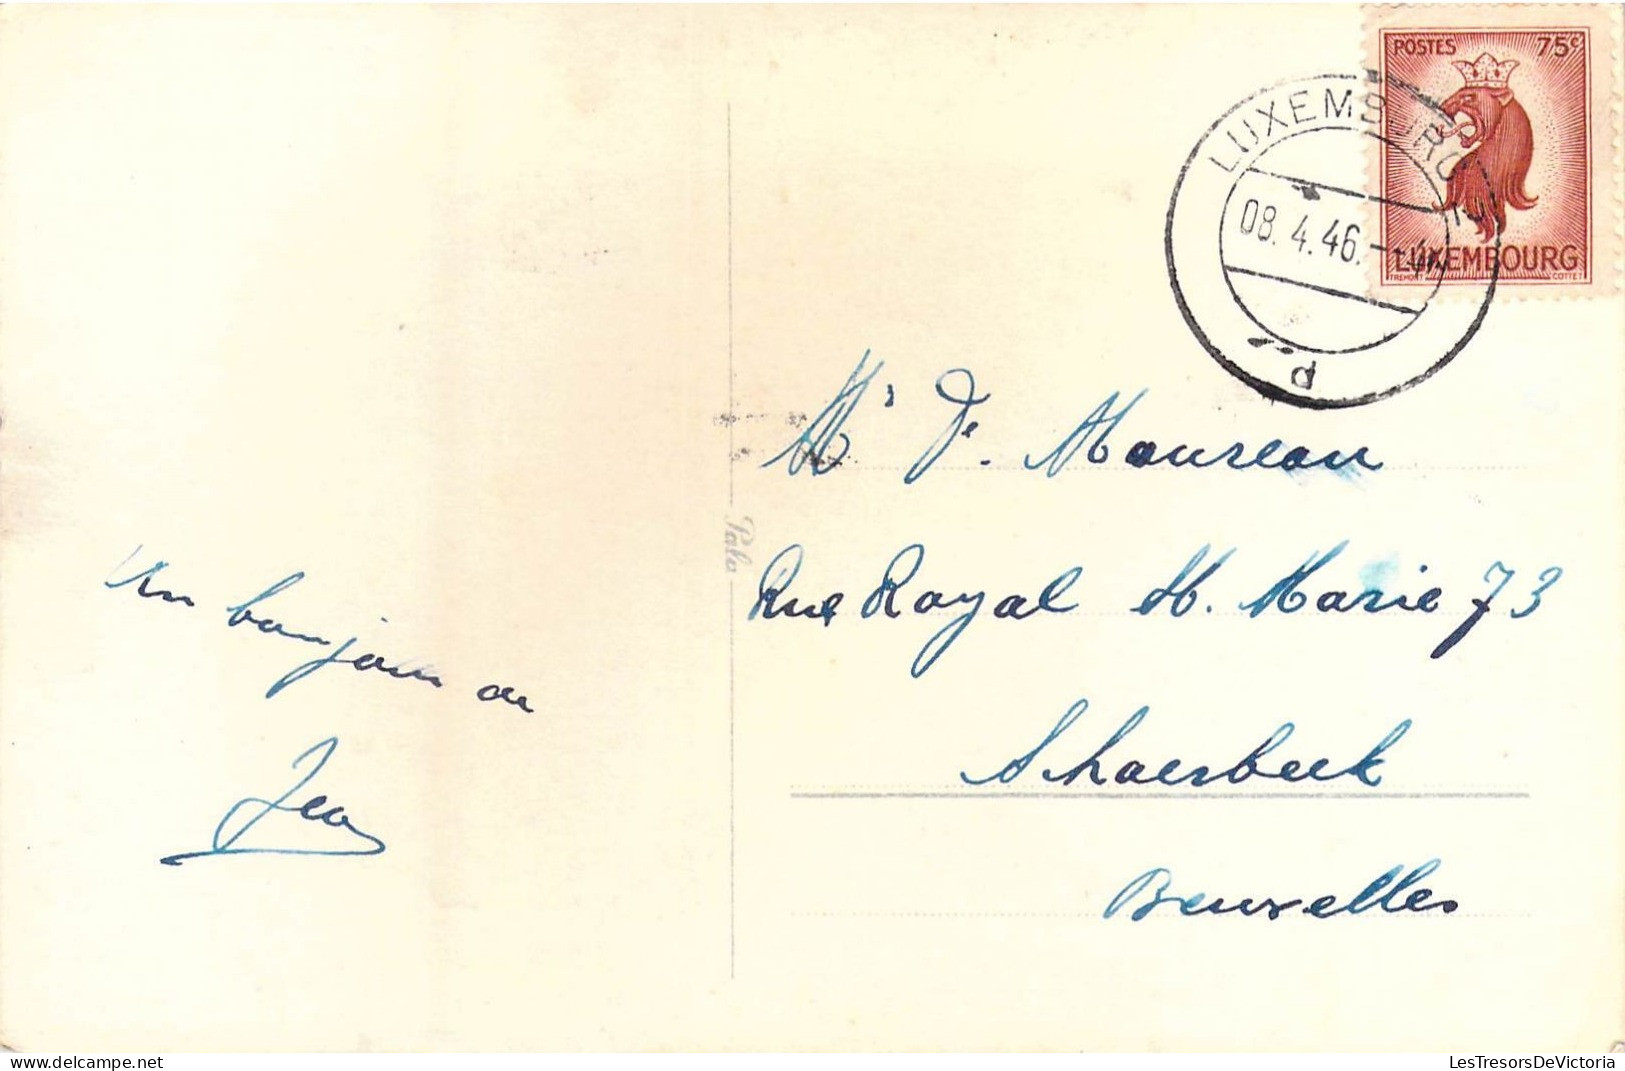 POSTES 75c
LUXEMBOURG
TREMONT COTTET
LUXEMBOURG
08.4.46.
d
Mr De. Moureau
Rue Royal St. Marie 73
Schaerbeek
Bruxelles
Palo
Un bonjour de
Jean
Delcampe.net
LesTresorsDeVictoria